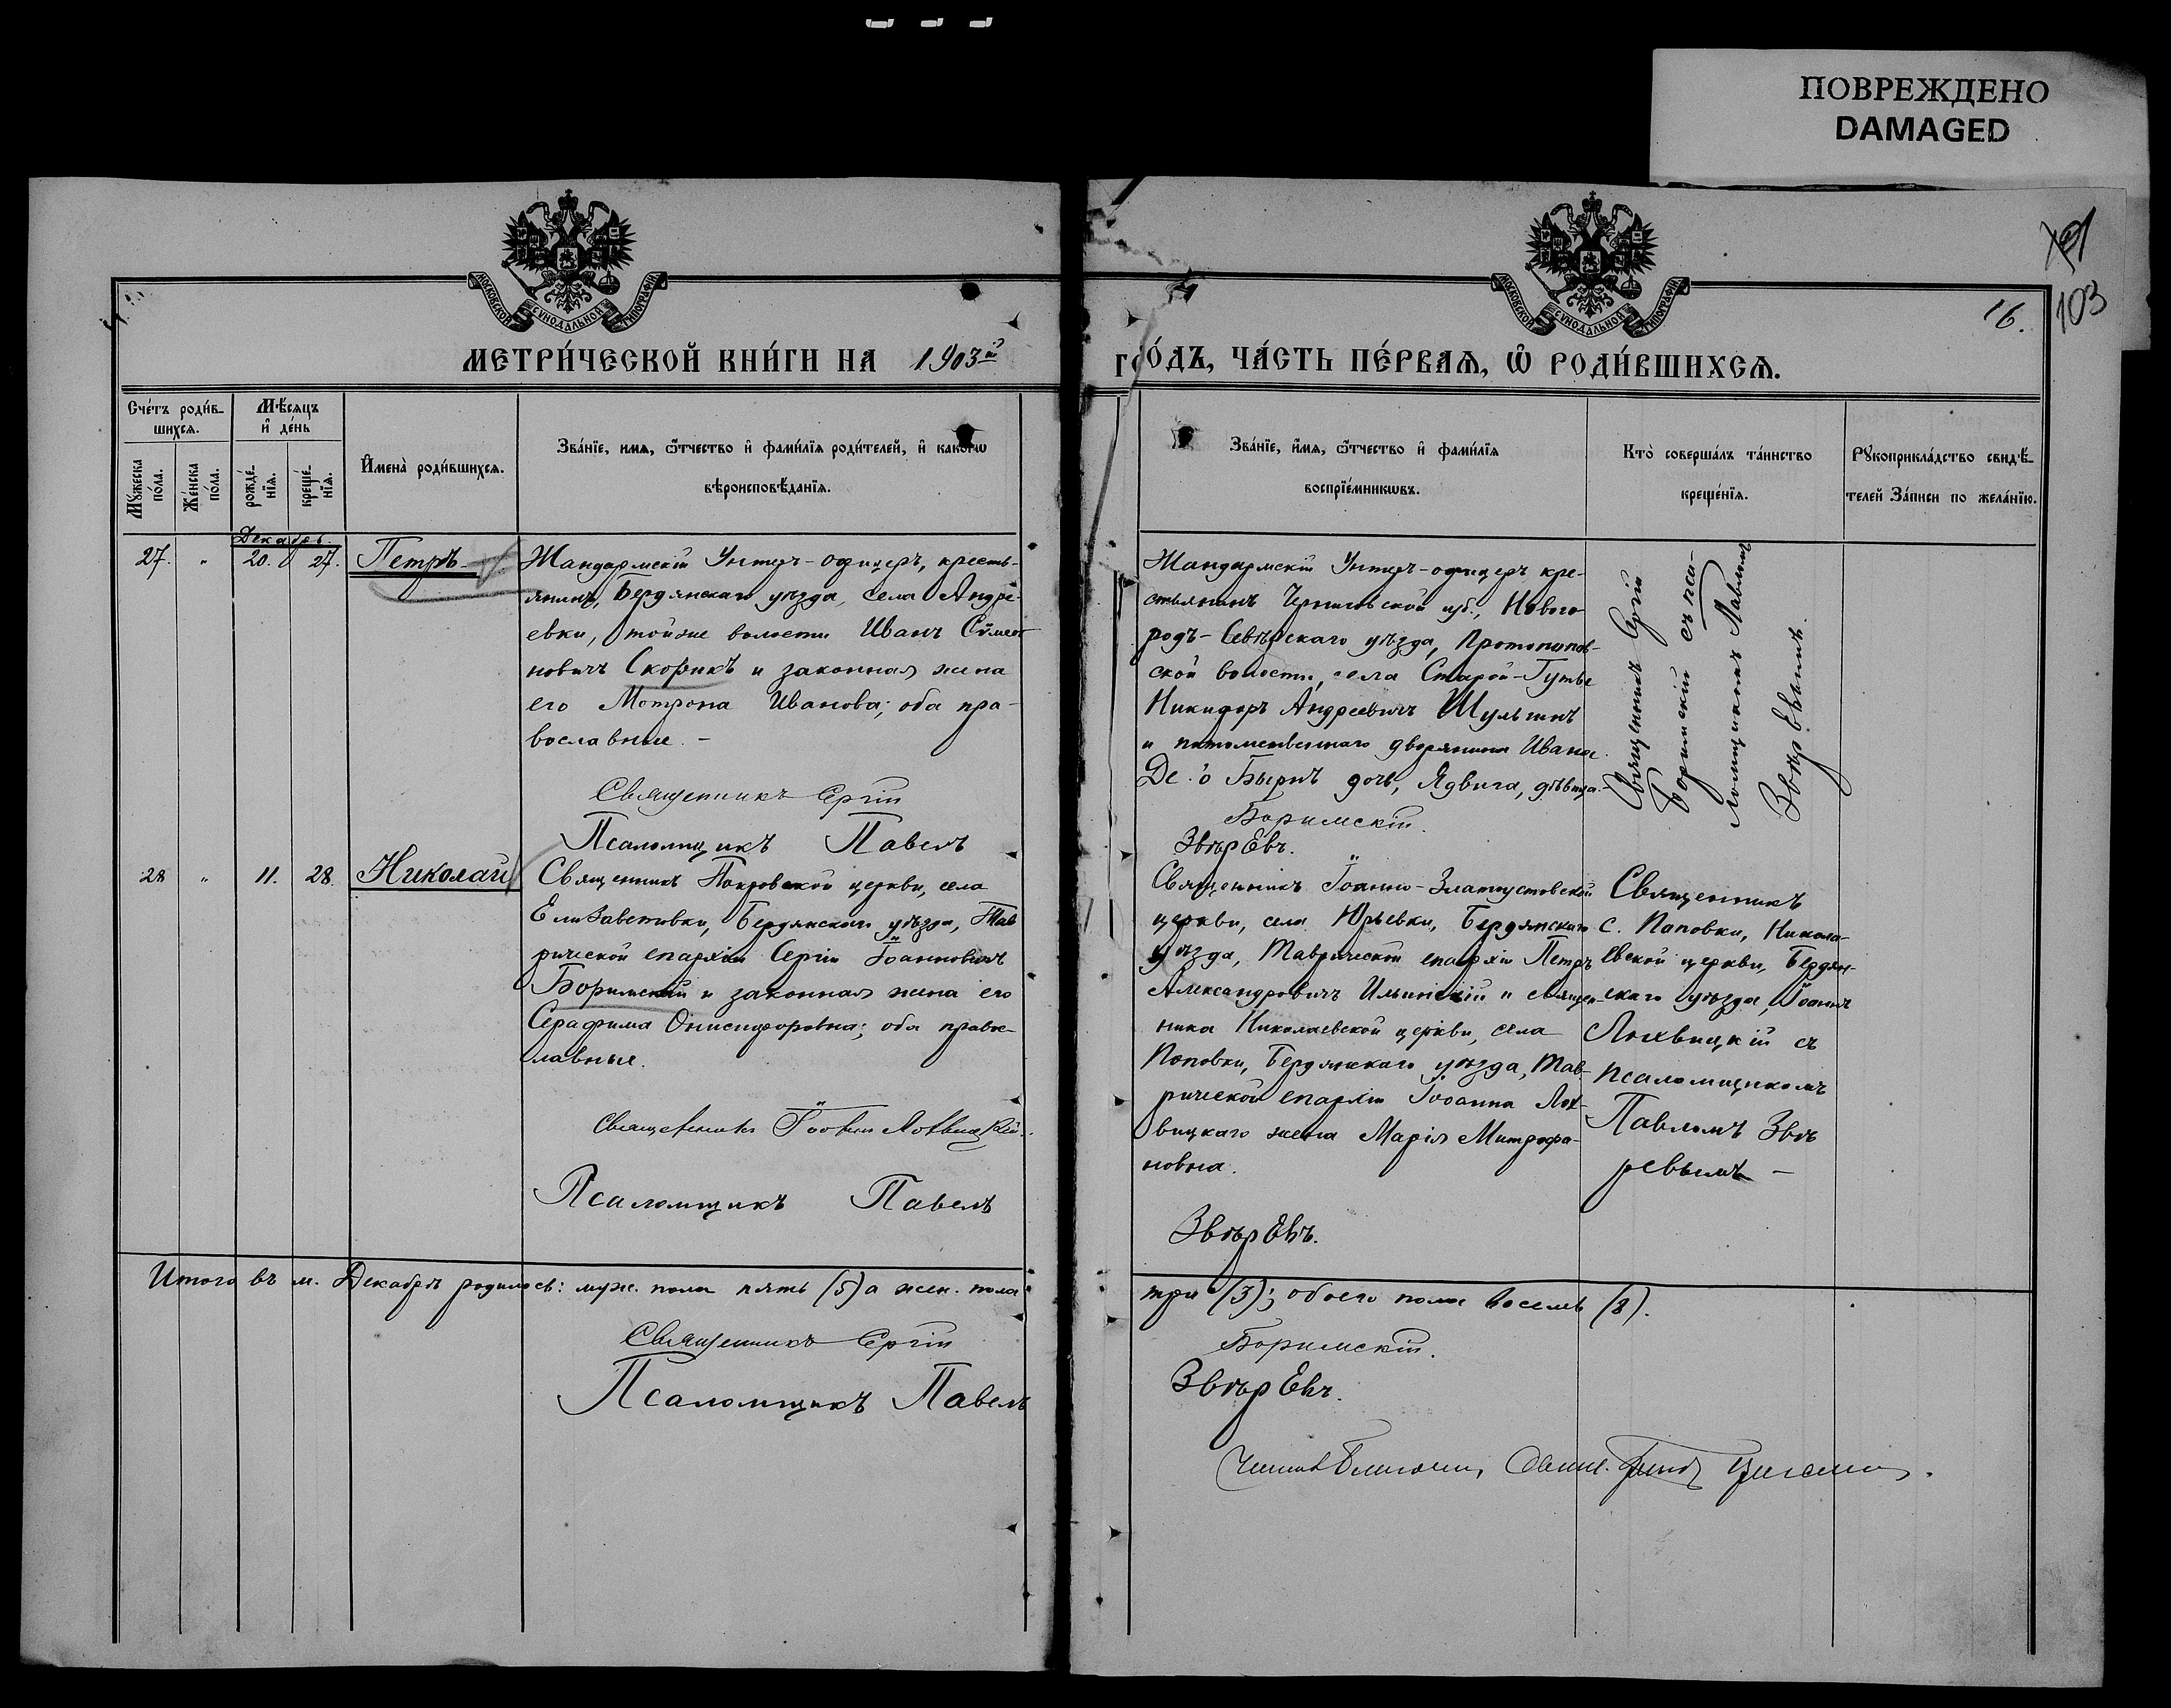 ПОВРЕЖДЕНО
DAMAGED
103
16.
МОСКОВСКОЙ СѴНОДАЛЬНОЙ ТИПОГРАФІИ
МОСКОВСКОЙ СѴНОДАЛЬНОЙ ТИПОГРАФІИ
МЕТРИ́ЧЕСКОЙ КНИ́ГИ НА 1903й
ГО́ДЪ, ЧА́СТЬ ПЕ́РВАѦ, Ѡ҆ РОДИ́ВШИХСѦ.
Сче́тъ роди́в-
шихсѧ.
Мѣ́сѧцъ
и҆ де́нь
Мꙋжеска
по́ла.
Же́нска
по́ла.
рожде́-
нїѧ.
креще́-
нїѧ.
И҆мена̀ роди́вшихсѧ.
Зва́нїе, имѧ, ѿтчество и҆ фами́лїѧ роди́телей, и҆ какогѡ
вѣроисповѣ́данїѧ.
Зва́нїе, и҆́мѧ, ѿтчество и҆ фами́лїѧ
воспрїе́мникѡвъ.
Кто̀ соверша́лъ та́инство
креще́нїѧ.
Рꙋкоприкла́дство свидѣ́-
телей За́писи по жела́нїю.
Декабрь.
27. " 20. 27. Петръ
Жандармскій Унтеръ-офицеръ, кресть-
янинъ, Бердянскаго уѣзда, села Андре-
евки, тойже волости Иванъ Сѵмео-
новичъ Скорикъ и законная жена
его Мотрона Иванова; оба пра-
вославные. -
Священникъ Сергій
Псаломщикъ Павелъ
Жандармскій Унтеръ-офицеръ кре-
стьянинъ Черниговской губ., Нового-
родъ-Сѣверскаго уѣзда, Протопопов-
ской волости, села Старой-Гутьи
Никифоръ Андреевичъ Шульгинъ
и потомственнаго дворянина Ивана
Де-о Бырнъ дочь, Ядвига, дѣвица.
Боримскій.
Звѣревъ.
Священникъ Сергій
Боримскій съ пса-
ломщикомъ Павломъ
Звѣревымъ.
28 " 11. 28. Николай
Священникъ Покровской церкви, села
Елизаветовки, Бердянскаго уѣзда, Тав-
рической епархіи Сергій Іоанновичъ
Боримскій и законная жена его
Серафима Онисифоровна; оба правос-
лавные.
Священникъ Іоаннъ Лохвицкій.
Псаломщикъ Павелъ
Священникъ Іоанно-Златоустовской
церкви, села Юрьевки, Бердянскаго
уѣзда, Таврической епархіи Петръ
Александровичъ Ильинскій и священ-
ника Николаевской церкви, села
Поповки, Бердянскаго уѣзда, Тав-
рической епархіи Іоанна Лох-
вицкаго жена Марія Митрофа-
новна.
Звѣревъ.
Священникъ
с. Поповки, Никола-
евской церкви, Бердян-
скаго уѣзда, Іоаннъ
Лохвицкій съ
псаломщикомъ
Павломъ Звѣ
ревымъ -
Итого въ м. Декабрѣ родилось: муж. пола пять (5) а жен. пола
три (3); обоего пола восемь (8).
Священникъ Сергій
Боримскій.
Псаломщикъ Павелъ
Звѣревъ.